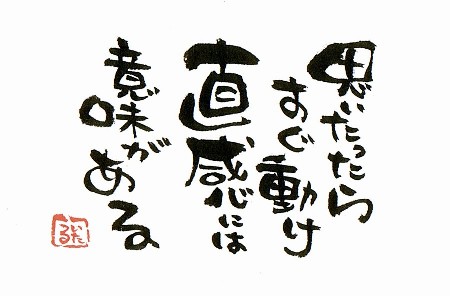 思いたったら
すぐ動け
直感には
意味が
ある